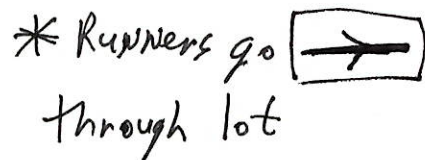 * Runners go →
through lot